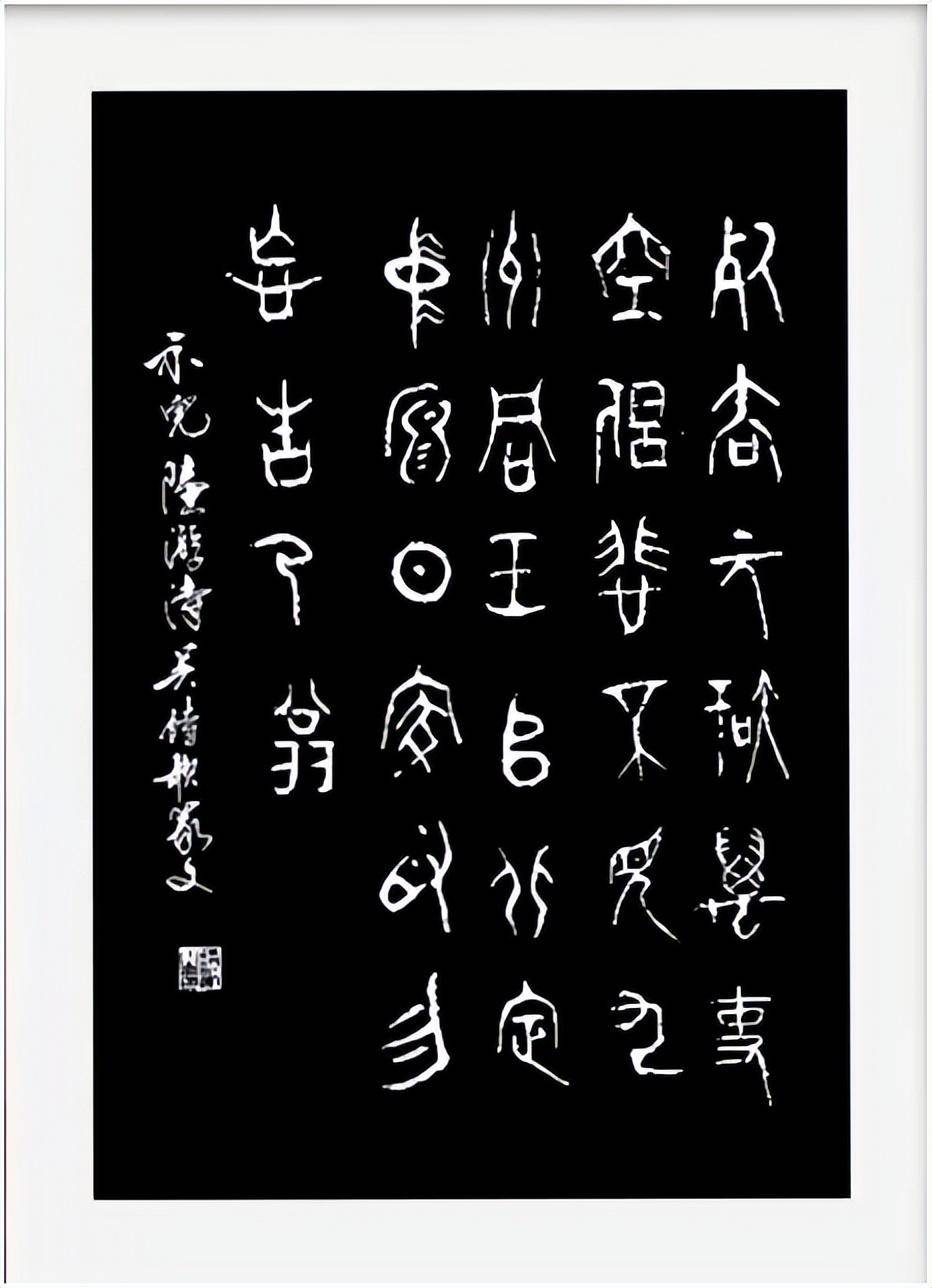 死去元知萬事
空但悲不見九
州同王師北定
中原日家祭勿
忘告乃翁
示兒 陸游詩 吴 篆文